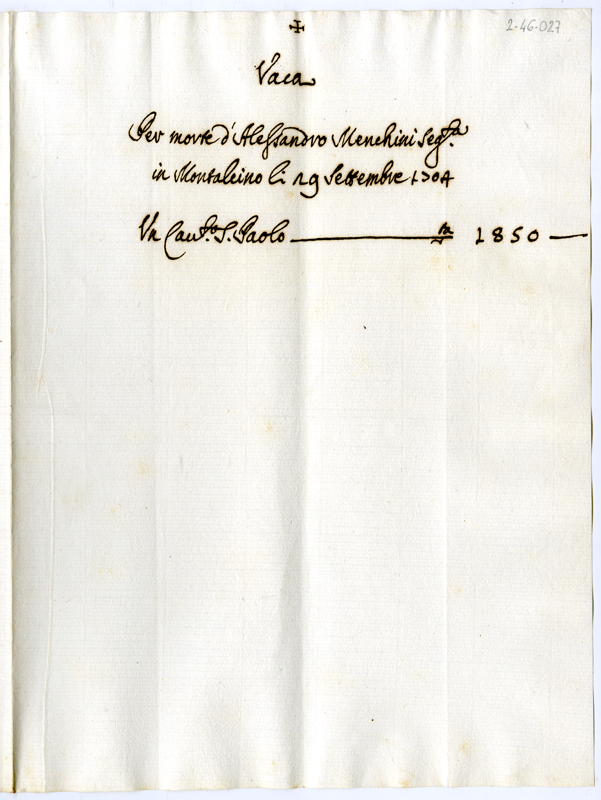 2-46-027
✠
Vaca
Per morte d'Alessandro Menchini Seg.ta
in Montalcino li 29 Settembre 1704
Un Cau.to S. Paolo 1850